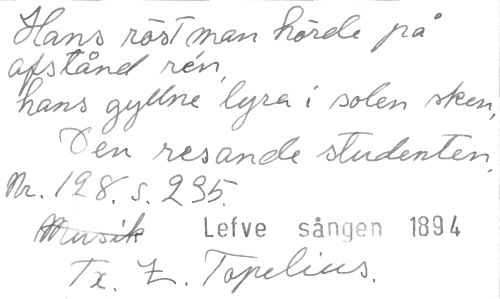 Hans röst man hörde på
afstånd ren,
hans gyllne lyra i solen sken,
Den resande studenten.
Nr. 128. s. 235.
Musik Lefve sången 1894
Tx. Z. Topelius.